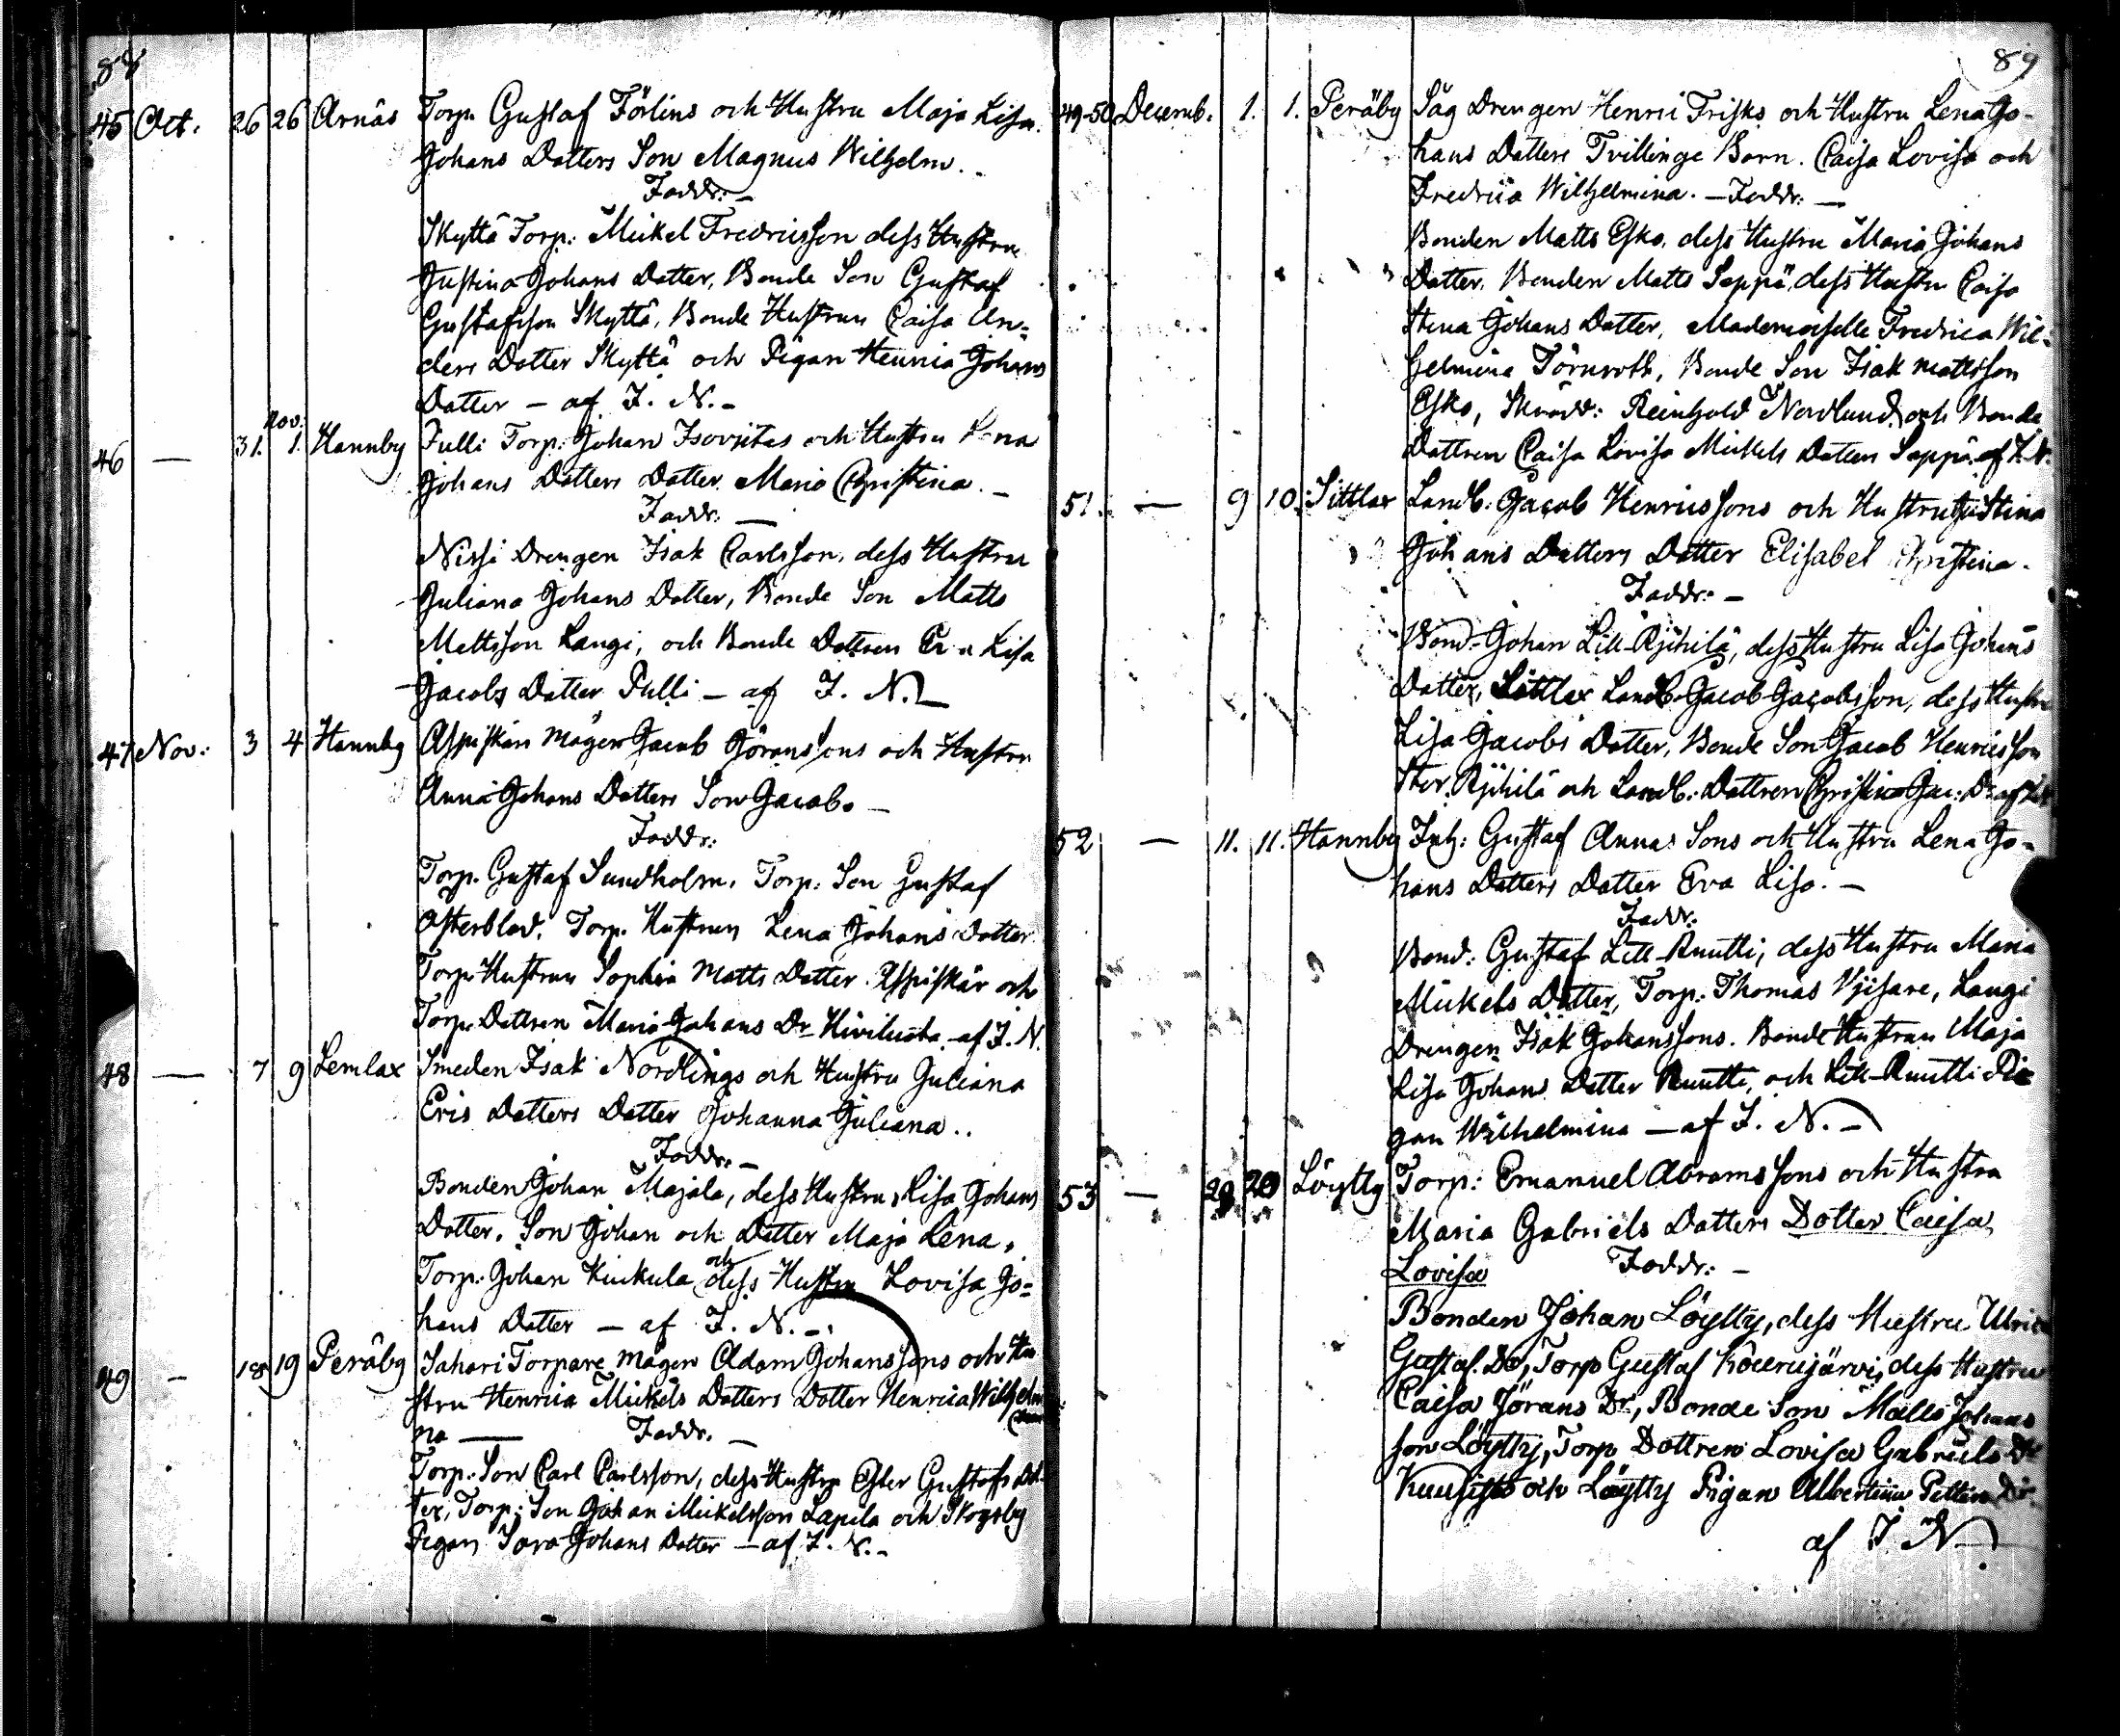 88
45 Oct. 26 26 Arnäs Torp. Gustaf Förlins och Hustru Maja Lisa
Johans Dotters Son Magnus Wilhelm.
Faddr: —
Skyttä Torp: Mickel Fredricsson dess Hustru
Justina Johans Dotter, Bonde Son Gustaf
Gustafsson Skyttä, Bonde Hustrun Caisa An-
ders Dotter Skyttä och Pigan Henrica Johans
Dotter — af I. N. —
46 — 31. Nov: 1. Hannby Pulli Torp: Johan Isovitas och Hustru Lena
Johans Dotters Dotter Maria Christina. —
Faddr. —
Nissi Drengen Isak Carlsson, dess Hustru
Juliana Johans Dotter, Bonde Son Matts
Mattsson Langi, och Bonde Dottren Lisa
Jacobs Dotter Pulli — af I. N. —
47 Nov: 3 4 Hannby Aspiskär Mågen Jacob Göranssons och Hustru
Anna Johans Dotters Son Jacob. —
Faddr:
Torp. Gustaf Sundholm, Torp: Son Gustaf
Österblad, Torp. Hustrun Lena Johans Dotter
Torp Hustrun Sophia Matts Dotter Aspiskär och
Torp. Dottren Maria Johans Dr af I. N.
48 — 7 9 Lemlax Smeden Isak Nordlings och Hustru Juliana
Erics Dotters Dotter Johanna Juliana..
Faddr. —
Bonden Johan Majala, dess Hustru Lisa Johans
Dotter, Son Johan och Dotter Maja Lena,
Torp: Johan Kuckula och dess Hustru Lovisa Jo-
hans Dotter — af I. N. —
49 — 18 19 Peräby Sahari Torpare Mågen Adam Johanssons och Hu
stru Henrica Mickels Dotters Dotter Henrica Wilhelmi
na — Faddr. —
Torp. Son Carl Carlsson, dess Hustru Ester Gustafs Dot-
ter, Torp: Son Johan Mickelsson Lapila och Skogsby
Pigan Sara Johans Dotter — af I. N. —
89
49-50 Decemb. 1. 1. Peräby Såg Drengen Henric Frisks och Hustru Lena Jo-
hans Dotters Tvillinge Barn. Caisa Lovisa och
Fredrica Wilhelmina. — Faddr: —
Bonden Matts Esko, dess Hustru Maria Johans
Dotter, Bonden Matts Seppä, dess Hustru Caisa
Stina Johans Dotter, Mademoiselle Fredrica Wil-
helmina Törnroth, Bonde Son Isak Mattsson
Esko, Skrädd: Reinhold Nordlund och Bonde
Dottren Caisa Lovisa Mickels Dotter Seppä af I. N.
51. — 9 10. Sittlax Landb: Jacob Henricssons och Hustru Justina
Johans Dotters Dotter Elisabet Christina.
Faddr: —
Bond. Johan Lill-Ryhilä, dess Hustru Lisa Johans
Dotter, Sittlax Landb. Jacob Jacobsson, dess Hustru
Lisa Jacobs Dotter, Bonde Son Jacob Henricsson
Stor Ryhilä och Landb: Dottren Christina Jac: Dr af I.N.
52 — 11. 11. Hannby Inh: Gustaf Annas Sons och Hustru Lena Jo-
hans Dotters Dotter Eva Lisa. —
Faddr:
Bond: Gustaf Lill-Knutti, dess Hustru Maria
Mickels Dotter, Torp: Thomas Vjisare, Langi
Drengen Isak Johanssons. Bonde Hustrun Maja
Lisa Johans Dotter Knutti, och Lill-Knutti Pi
gan Wilhelmina — af I. N. —
53 — 29 29 Löytty Torp: Emanuel Abramssons och Hustru
Maria Gabriels Dotters Dotter Caisa
Lovisa Faddr: —
Bonden Johan Löytty, dess Hustru Ulrica
Gustaf. Dr, Torp Gustaf Kouru­järvi, dess Hustru
Caisa Jörans Dr, Bonde Son Matts Johans
son Löytty, Torp Dottren Lovisa Gabriels Dr
Kuusisto och Löytty Pigan Albertina Petters Dr.
af I. N.